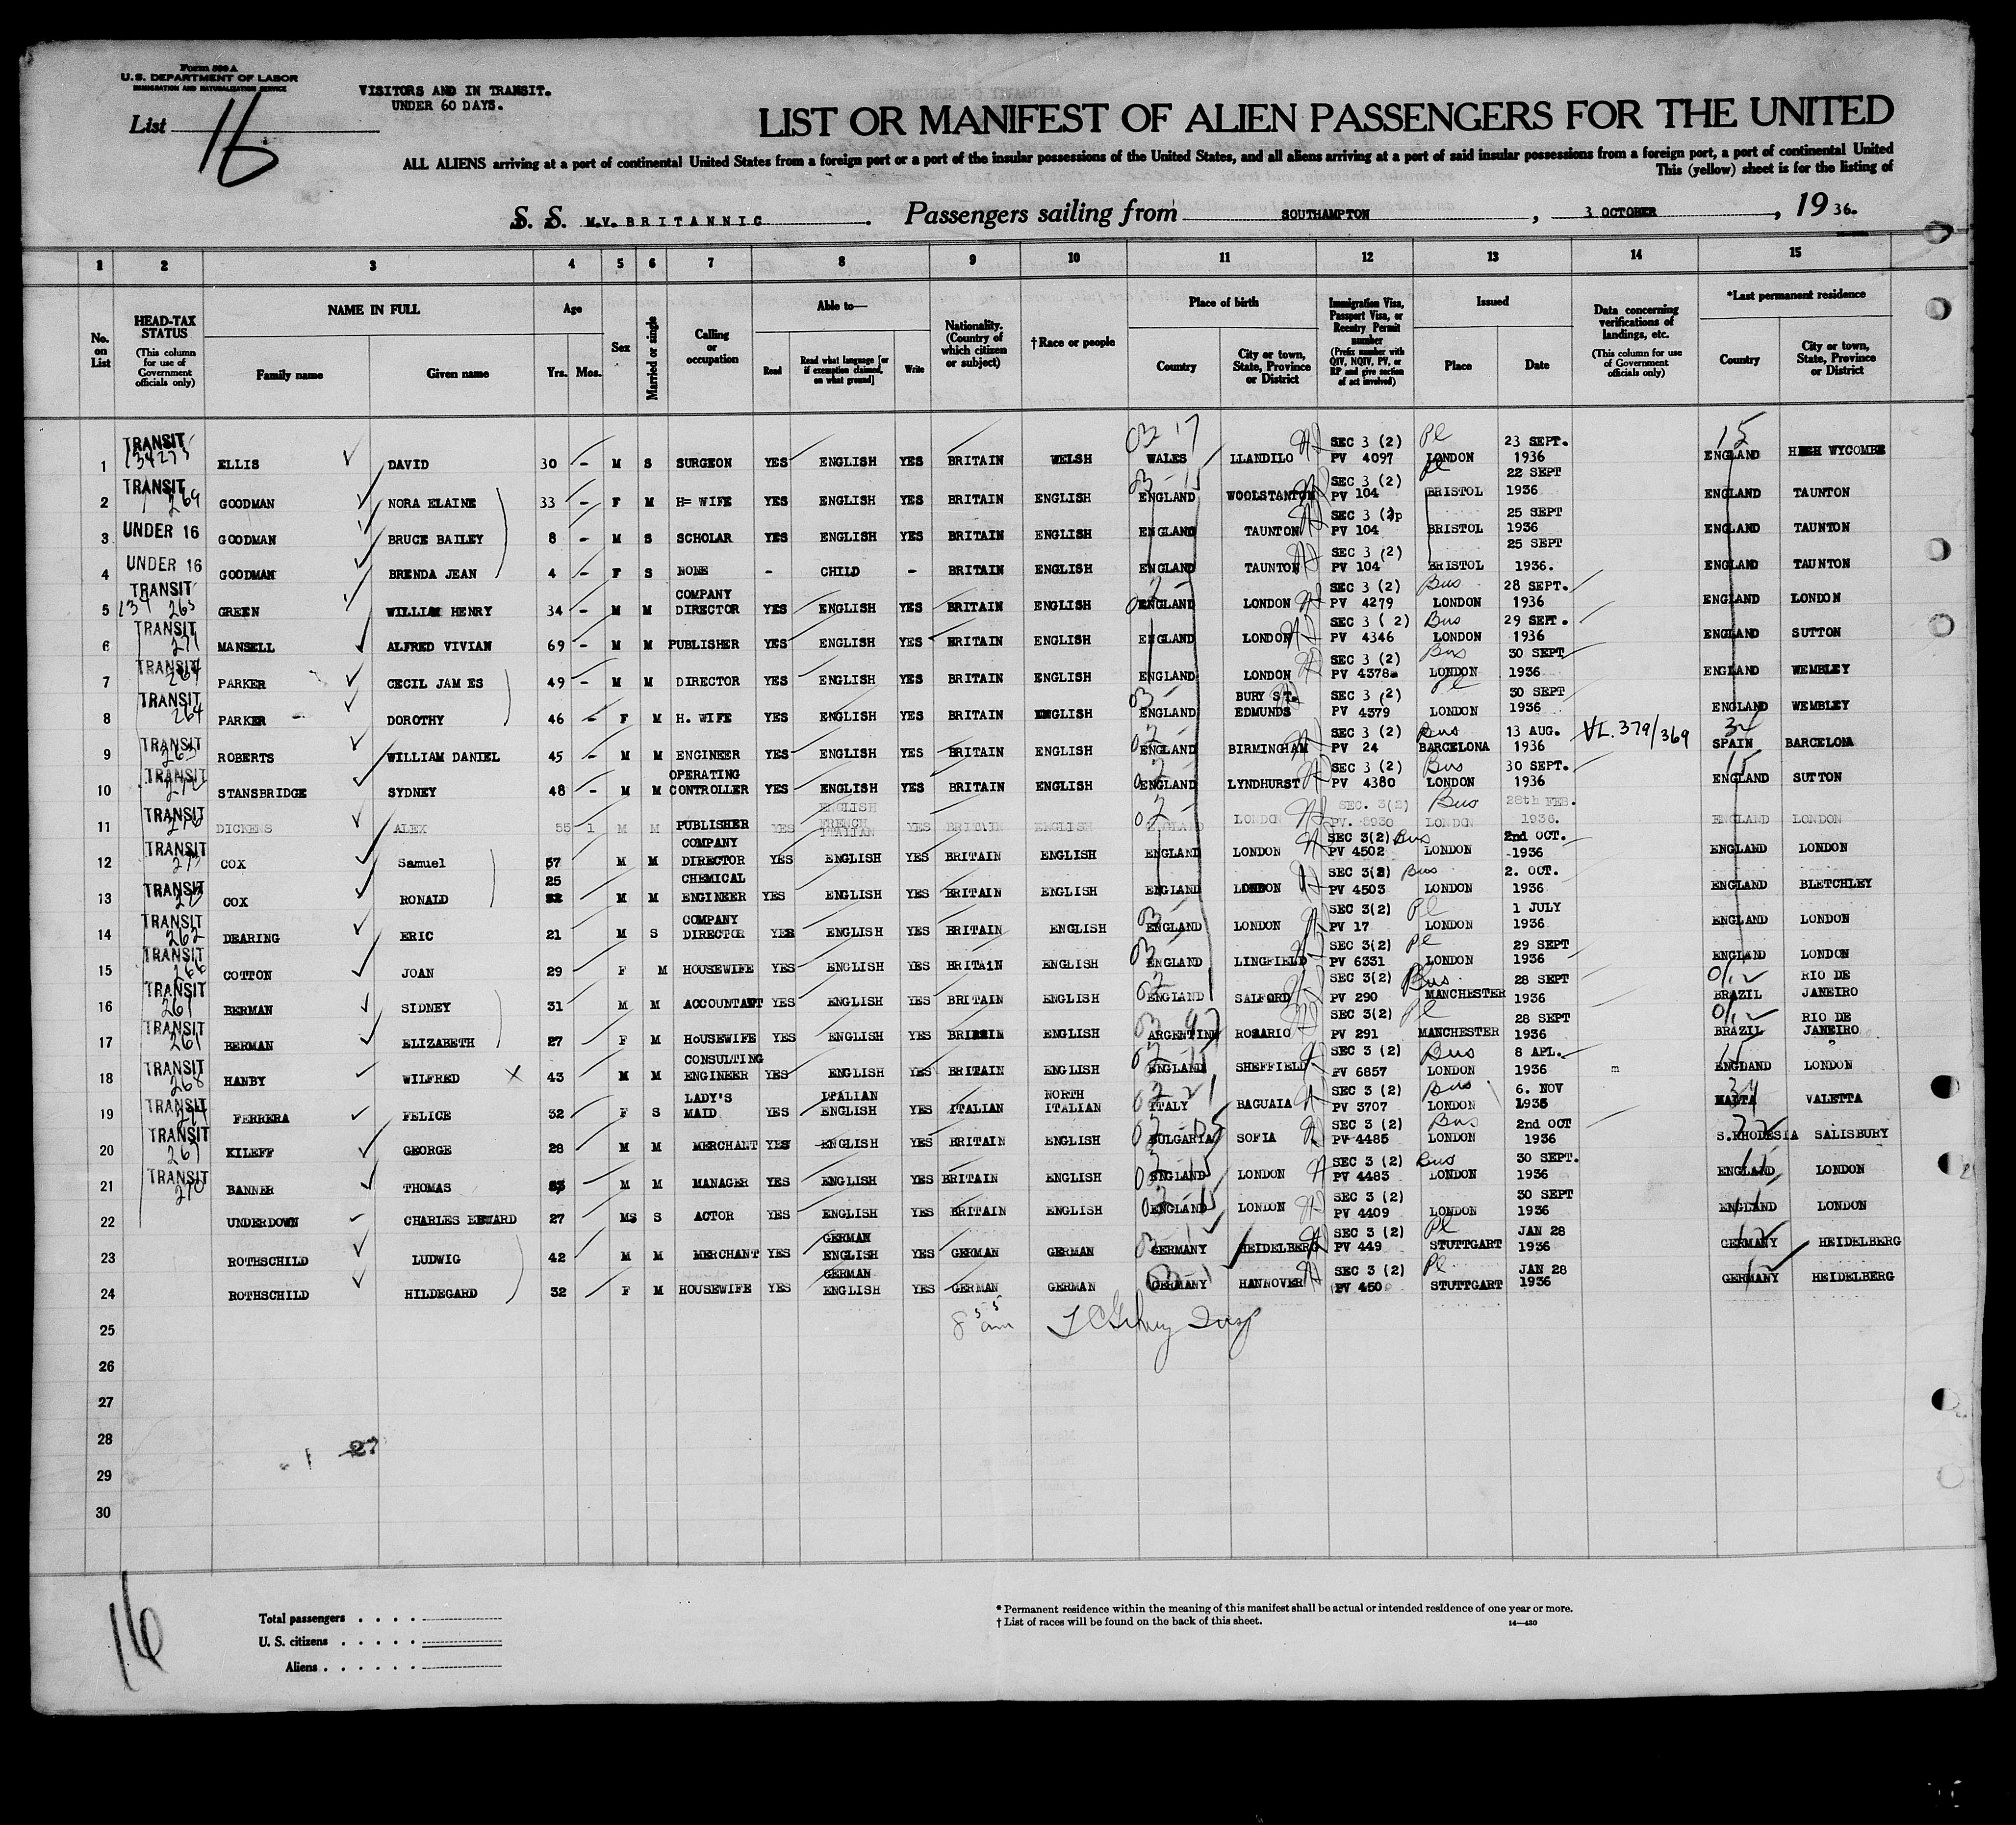 Form 500 A
U.S. DEPARTMENT OF LABOR
IMMIGRATION AND NATURALIZATION SERVICE
VISITORS AND IN TRANSIT.
UNDER 60 DAYS.
List 16
LIST OR MANIFEST OF ALIEN PASSENGERS FOR THE UNITED
ALL ALIENS arriving at a port of continental United States from a foreign port or a port of the insular possessions of the United States, and all aliens arriving at a port of said insular possessions from a foreign port, a port of continental United
This (yellow) sheet is for the listing of
S. S. M.V. BRITANNIC. Passengers sailing from SOUTHAMPTON, 3 OCTOBER, 19 36.
1 2 3 4 5 6 7 8 9 10 11 12 13 14 15
No. on List
HEAD-TAX STATUS (This column for use of Government officials only)
NAME IN FULL
Family name Given name
Age
Yrs. Mos.
Sex
Married or single
Calling or occupation
Able to—
Read
Read what language [or if exemption claimed, on what ground]
Write
Nationality. (Country of which citizen or subject)
†Race or people
Place of birth
Country
City or town, State, Province or District
Immigration Visa, Passport Visa, or Reentry Permit number (Prefix number with QIV, NQIV, PV, or RP and give section of act involved)
Issued
Place Date
Data concerning verifications of landings, etc. (This column for use of Government officials only)
*Last permanent residence
Country
City or town, State, Province or District
1 TRANSIT ELLIS DAVID 30 - M S SURGEON YES ENGLISH YES BRITAIN WELSH WALES LLANDILO SEC 3 (2) PV 4097 Pl LONDON 23 SEPT. 1936 ENGLAND HIGH WYCOMBE
2 TRANSIT 269 GOODMAN NORA ELAINE 33 - F M H= WIFE YES ENGLISH YES BRITAIN ENGLISH ENGLAND WOOLSTANTON SEC 3 (2) PV 104 Pl BRISTOL 22 SEPT 1936 ENGLAND TAUNTON
3 UNDER 16 GOODMAN BRUCE BAILEY 8 - M S SCHOLAR YES ENGLISH YES BRITAIN ENGLISH ENGLAND TAUNTON SEC 3 (2) PV 104 BRISTOL 25 SEPT 1936 ENGLAND TAUNTON
4 UNDER 16 GOODMAN BRENDA JEAN 4 - F S NONE - CHILD - BRITAIN ENGLISH ENGLAND TAUNTON SEC 3 (2) PV 104 BRISTOL 25 SEPT 1936. ENGLAND TAUNTON
5 TRANSIT GREEN WILLIAM HENRY 34 - M M COMPANY DIRECTOR YES ENGLISH YES BRITAIN ENGLISH ENGLAND LONDON SEC 3 (2) PV 4279 Bus LONDON 28 SEPT. 1936 ENGLAND LONDON
6 TRANSIT 271 MANSELL ALFRED VIVIAN 69 - M M PUBLISHER YES ENGLISH YES BRITAIN ENGLISH ENGLAND LONDON SEC 3 ( 2) PV 4346 Bus LONDON 29 SEPT. 1936 ENGLAND SUTTON
7 TRANSIT 264 PARKER CECIL JAM ES 49 - M M DIRECTOR YES ENGLISH YES BRITAIN ENGLISH ENGLAND LONDON SEC 3 (2) PV 4378 Bus LONDON 30 SEPT 1936 ENGLAND WEMBLEY
8 TRANSIT 264 PARKER DOROTHY 46 - F M H. WIFE YES ENGLISH YES BRITAIN ENGLISH ENGLAND BURY ST. EDMUNDS SEC 3 (2) PV 4379 Pl LONDON 30 SEPT 1936 ENGLAND WEMBLEY
9 TRANSIT 263 ROBERTS WILLIAM DANIEL 45 - M M ENGINEER YES ENGLISH YES BRITAIN ENGLISH ENGLAND BIRMINGHAM SEC 3 (2) PV 24 Bus BARCELONA 13 AUG. 1936 VL. 379/369 SPAIN BARCELONA
10 TRANSIT 272 STANSBRIDGE SYDNEY 48 - M M OPERATING CONTROLLER YES ENGLISH YES BRITAIN ENGLISH ENGLAND LYNDHURST SEC 3 (2) PV 4380 Bus LONDON 30 SEPT. 1936 ENGLAND SUTTON
11 TRANSIT DICKENS ALEX 55 1 M M PUBLISHER YES ENGLISH FRENCH ITALIAN YES BRITAIN ENGLISH ENGLAND LONDON SEC. 3(2) PV. 8930 Bus LONDON 28th FEB. 1936. ENGLAND LONDON
12 TRANSIT 273 COX Samuel 57 M M COMPANY DIRECTOR YES ENGLISH YES BRITAIN ENGLISH ENGLAND LONDON SEC 3(2) PV 4502 Bus LONDON 2nd OCT. 1936 ENGLAND LONDON
13 TRANSIT 273 COX RONALD 25 M M CHEMICAL ENGINEER YES ENGLISH YES BRITAIN ENGLISH ENGLAND LONDON SEC 3(2) PV 4503 Bus LONDON 2. OCT. 1936 ENGLAND BLETCHLEY
14 TRANSIT 262 DEARING ERIC 21 M S COMPANY DIRECTOR YES ENGLISH YES BRITAIN ENGLISH ENGLAND LONDON SEC 3(2) PV 17 Pl LONDON 1 JULY 1936 ENGLAND LONDON
15 TRANSIT 266 COTTON JOAN 29 F M HOUSEWIFE YES ENGLISH YES BRITAIN ENGLISH ENGLAND LINGFIELD SEC 3(2) PV 6331 Pl LONDON 29 SEPT 1936 ENGLAND LONDON
16 TRANSIT 261 BERMAN SIDNEY 31 M M ACCOUNTANT YES ENGLISH YES BRITAIN ENGLISH ENGLAND SALFORD SEC 3(2) PV 290 Bus MANCHESTER 28 SEPT 1936 BRAZIL RIO DE JANEIRO
17 TRANSIT 261 BERMAN ELIZABETH 27 F M HoUSEWIFE YES ENGLISH YES BRITAIN ENGLISH ARGENTINA ROSARIO SEC 3(2) PV 291 Pl MANCHESTER 28 SEPT 1936 BRAZIL RIO DE JANEIRO
18 TRANSIT 268 HANBY WILFRED X 43 M M CONSULTING ENGINEER YES ENGLISH YES BRITAIN ENGLISH ENGLAND SHEFFIELD SEC 3 (2) PV 6857 Bus LONDON 8 APL. 1936 m ENGLAND LONDON
19 TRANSIT FERRERA FELICE 52 F S LADY'S MAID YES ITALIAN ENGLISH YES ITALIAN NORTH ITALIAN ITALY BAGUAIA SEC 3 (2) PV 3707 Bus LONDON 6. NOV 1935 MALTA VALETTA
20 TRANSIT 267 KILEFF GEORGE 28 M M MERCHANT YES ENGLISH YES BRITAIN ENGLISH BULGARIA SOFIA SEC 3 (2) PV 4485 Bus LONDON 2nd OCT 1936 S.RHODESIA SALISBURY
21 TRANSIT 270 BANNER THOMAS M M MANAGER YES ENGLISH YES BRITAIN ENGLISH ENGLAND LONDON SEC 3 (2) PV 4483 Bus LONDON 30 SEPT. 1936 ENGLAND LONDON
22 UNDERDOWN CHARLES EDWARD 27 MS S ACTOR YES ENGLISH YES BRITAIN ENGLISH ENGLAND LONDON SEC 3 (2) PV 4409 LONDON 30 SEPT 1936 ENGLAND LONDON
23 ROTHSCHILD LUDWIG 42 M M MERCHANT YES GERMAN ENGLISH YES GERMAN GERMAN GERMANY HEIDELBERG SEC 3 (2) PV 449 Pl STUTTGART JAN 28 1936 GERMANY HEIDELBERG
24 ROTHSCHILD HILDEGARD 32 F M HOUSEWIFE YES GERMAN ENGLISH YES GERMAN GERMAN GERMANY HANNOVER SEC 3 (2) PV 450 Pl STUTTGART JAN 28 1936 GERMANY HEIDELBERG
25 8 55 am Insp
26
27
28
27
29
30
16
Total passengers
U. S. citizens
Aliens
* Permanent residence within the meaning of this manifest shall be actual or intended residence of one year or more.
† List of races will be found on the back of this sheet.
14—430